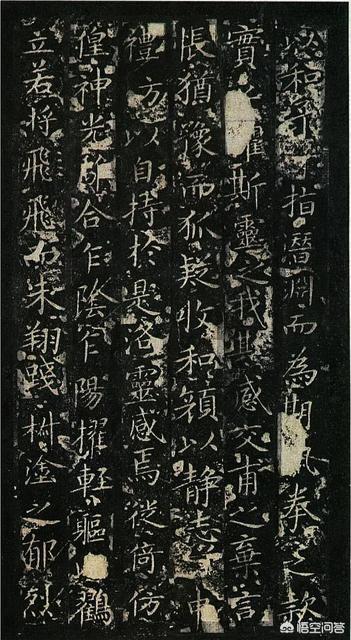 以和予兮指潛淵而為期執拳之款
實兮懼斯靈之我其感交甫之棄言
悵猶豫而狐疑收和顏以静志兮申
禮方以自持於是洛靈感焉徙倚仿
偟神光離合乍陰乍陽擢輕軀以鶴
立若将飛飛而未翔踐椒塗之郁烈
悟空问答